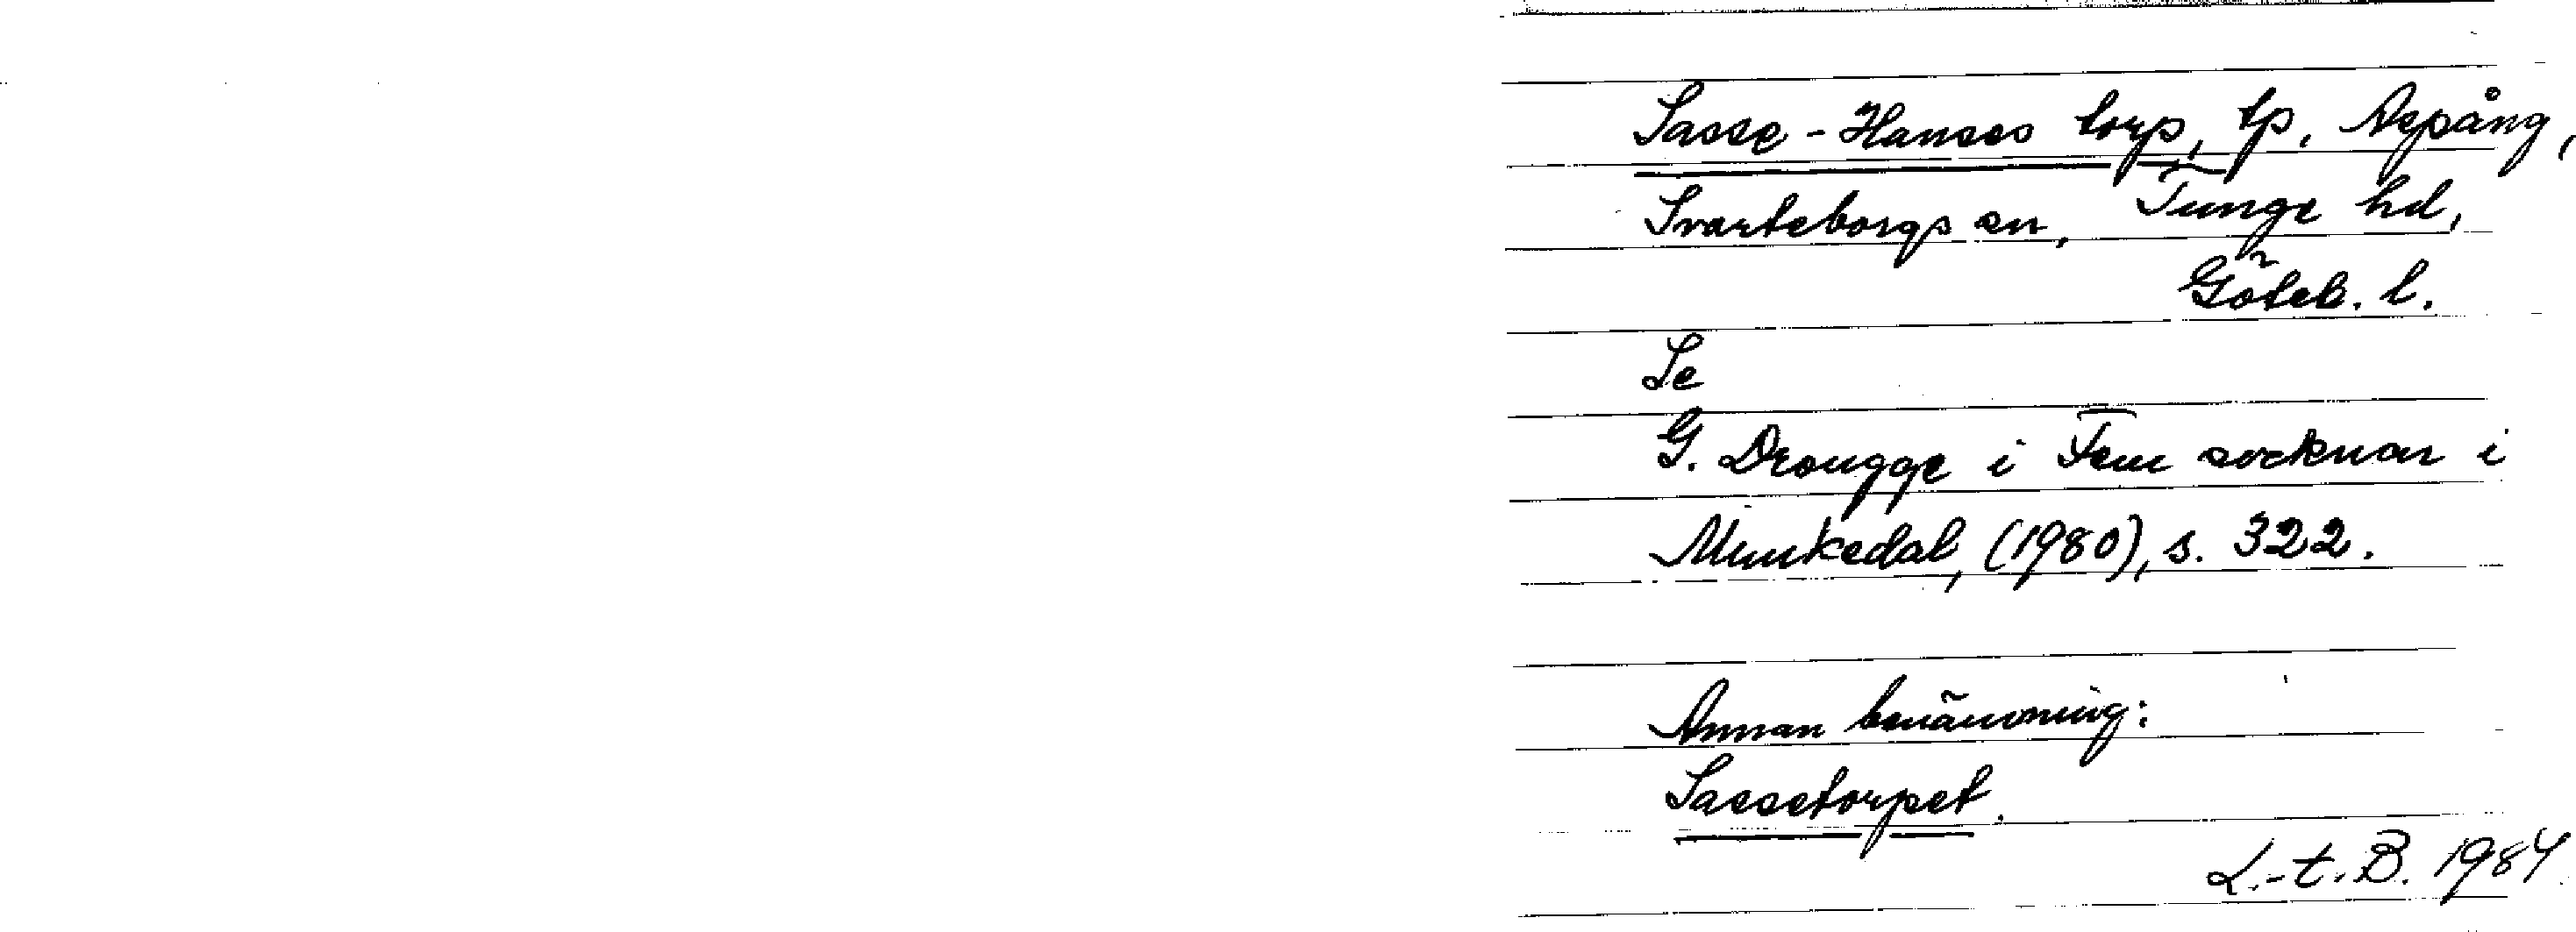 Sasse-Hanses torp, tp, Aspång,
Svarteborgs sn, Tunge hd,
Göteb. l.
Se
G. Drougge i Fem socknar i
Munkedal, (1980), s. 322.
Annan benämning:
Sassetorpet.
L.-t. B. 1984